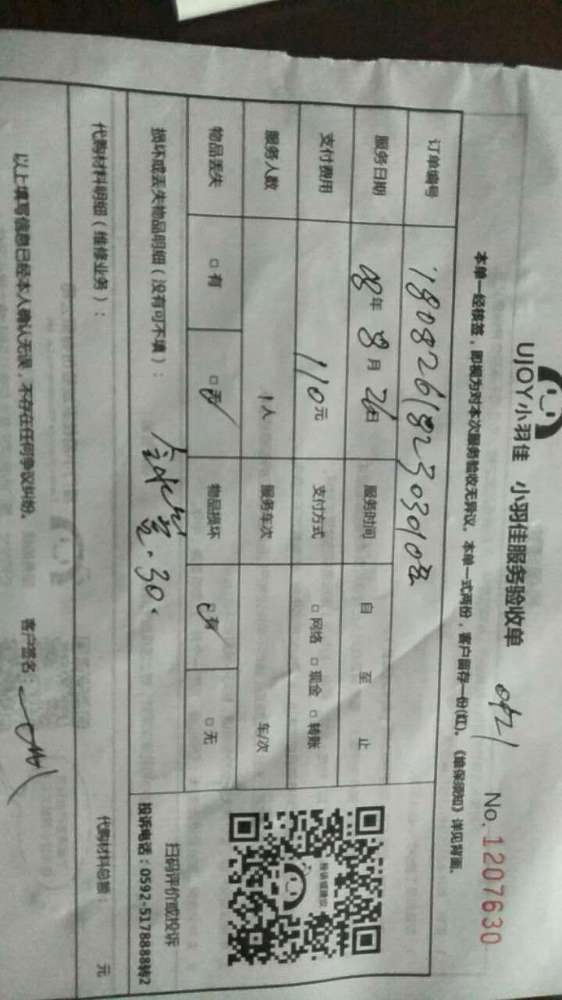 UJOY小羽佳 小羽佳服务验收单
No. 1207630
本单一经核签，即视为对本次服务验收无异议。本单一式两份，客户留存一份(红)。《维保须知》详见背面。
订单编号
服务日期 08年 8月 26日 服务时间 自 至 止
支付费用 110元 支付方式 □网络 □现金 □转账
服务人数 1人 服务车次 车/次
物品丢失 □有 □无 物品损坏 □有 □无
损坏或丢失物品明细（没有可不填）：
30.
扫码评价或投诉
投诉电话：0592-5178888转2
代购材料明细（维修业务）： 代购材料总额： 元
以上填写信息已经本人确认无误，不存在任何争议纠纷。 客户签名：